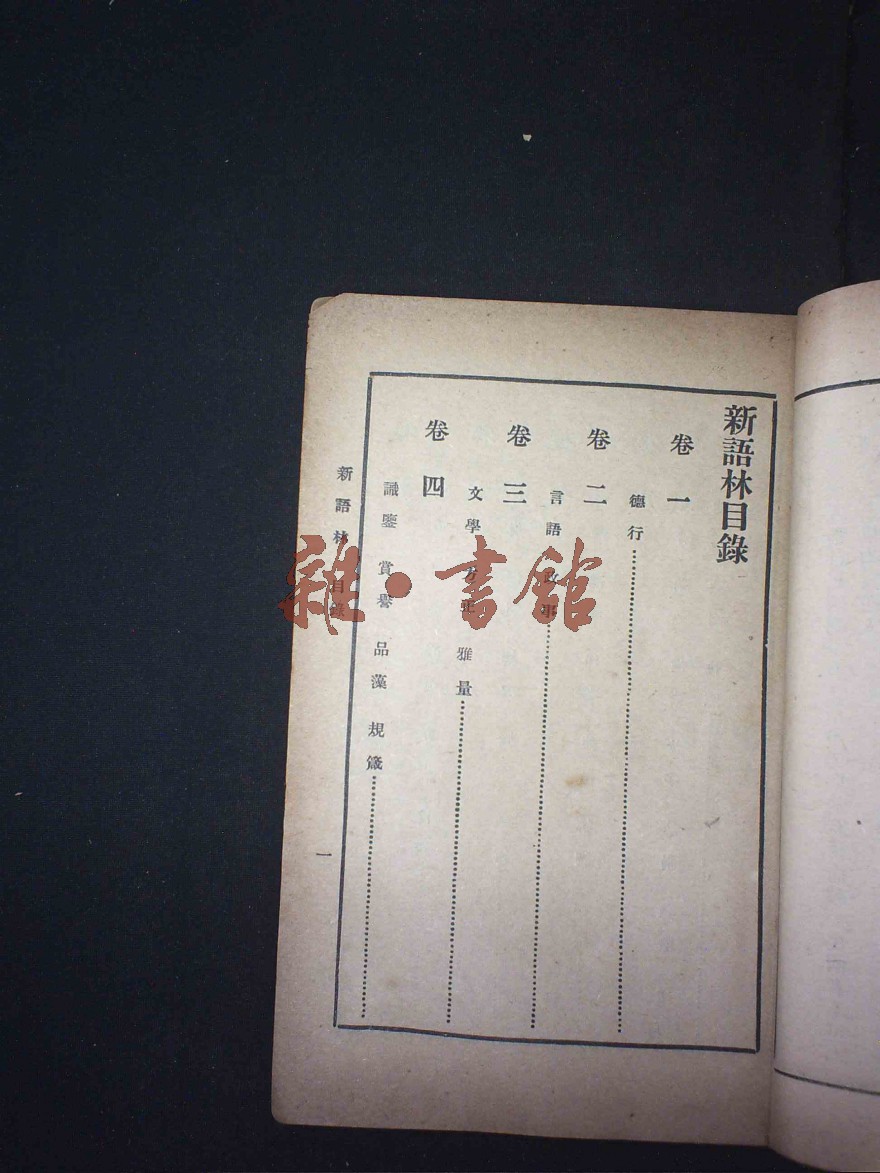 新語林目錄
卷一
德行
卷二
言語 政事
卷三
文學 方正 雅量
卷四
識鑒 賞譽 品藻 規箴
新語林 目錄
一
雜·書館